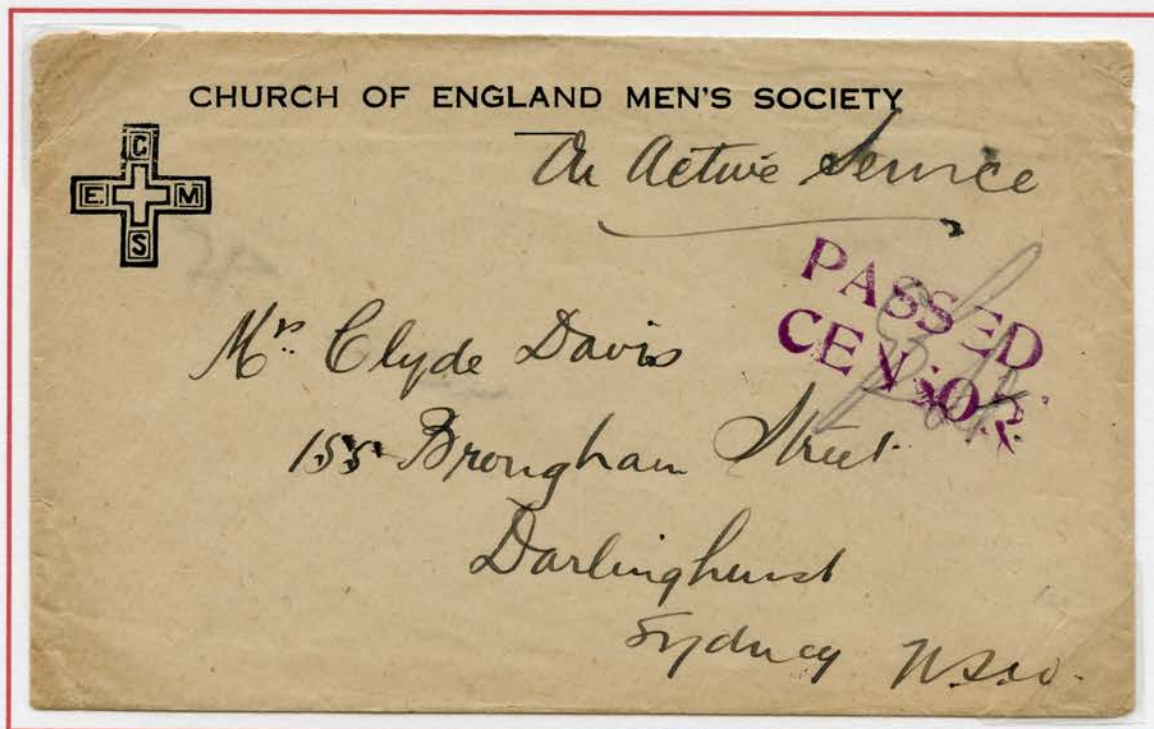 CHURCH OF ENGLAND MEN'S SOCIETY
On Active Service
C
E. M
S
PASSED
CENSOR
Mrs. Clyde Davis
155 Brougham Street
Darlinghurst
Sydney N.S.W.